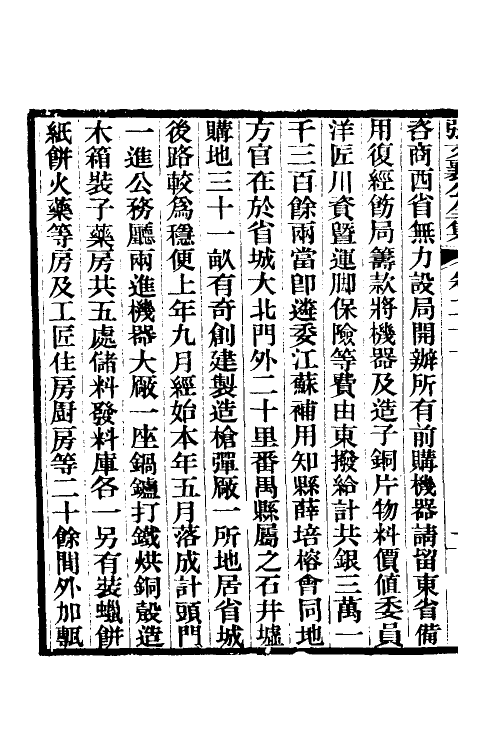 咨商西省無力設局開辦所有前購機器請留東省備
用復經飭局籌款將機器及造子銅片物料價值委員
洋匠川資曁運脚保險等費由東撥給計共銀三萬一
千三百餘兩當卽遴委江蘇補用知縣薛培榕會同地
方官在於省城大北門外二十里番禺縣屬之石井墟
購地三十一畝有奇創建製造槍彈厰一所地居省城
後路較爲穩便上年九月經始本年五月落成計頭門
一進公務廳兩進機器大厰一座鍋鑪打鐵烘銅殼造
木箱裝子藥房共五處儲料發料庫各一另有裝蠟餠
紙餠火藥等房及工匠住房厨房等二十餘間外加甎